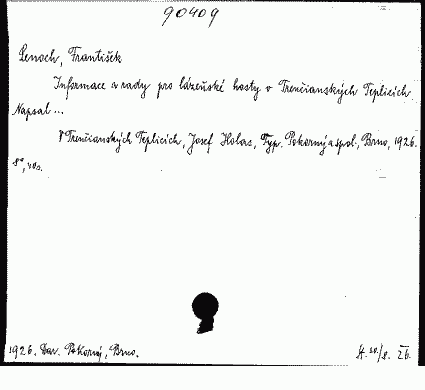 90409
Lenoch, František
Informace a rady pro lázeňské hosty v Trenčianských Teplicích
Napsal ...
V Trenčianských Teplicích, Josef Holas, Typ. Pokorný a spol., Brno, 1926.
8°, 40 s.
1926. Dar. Pokorný, Brno.
26.